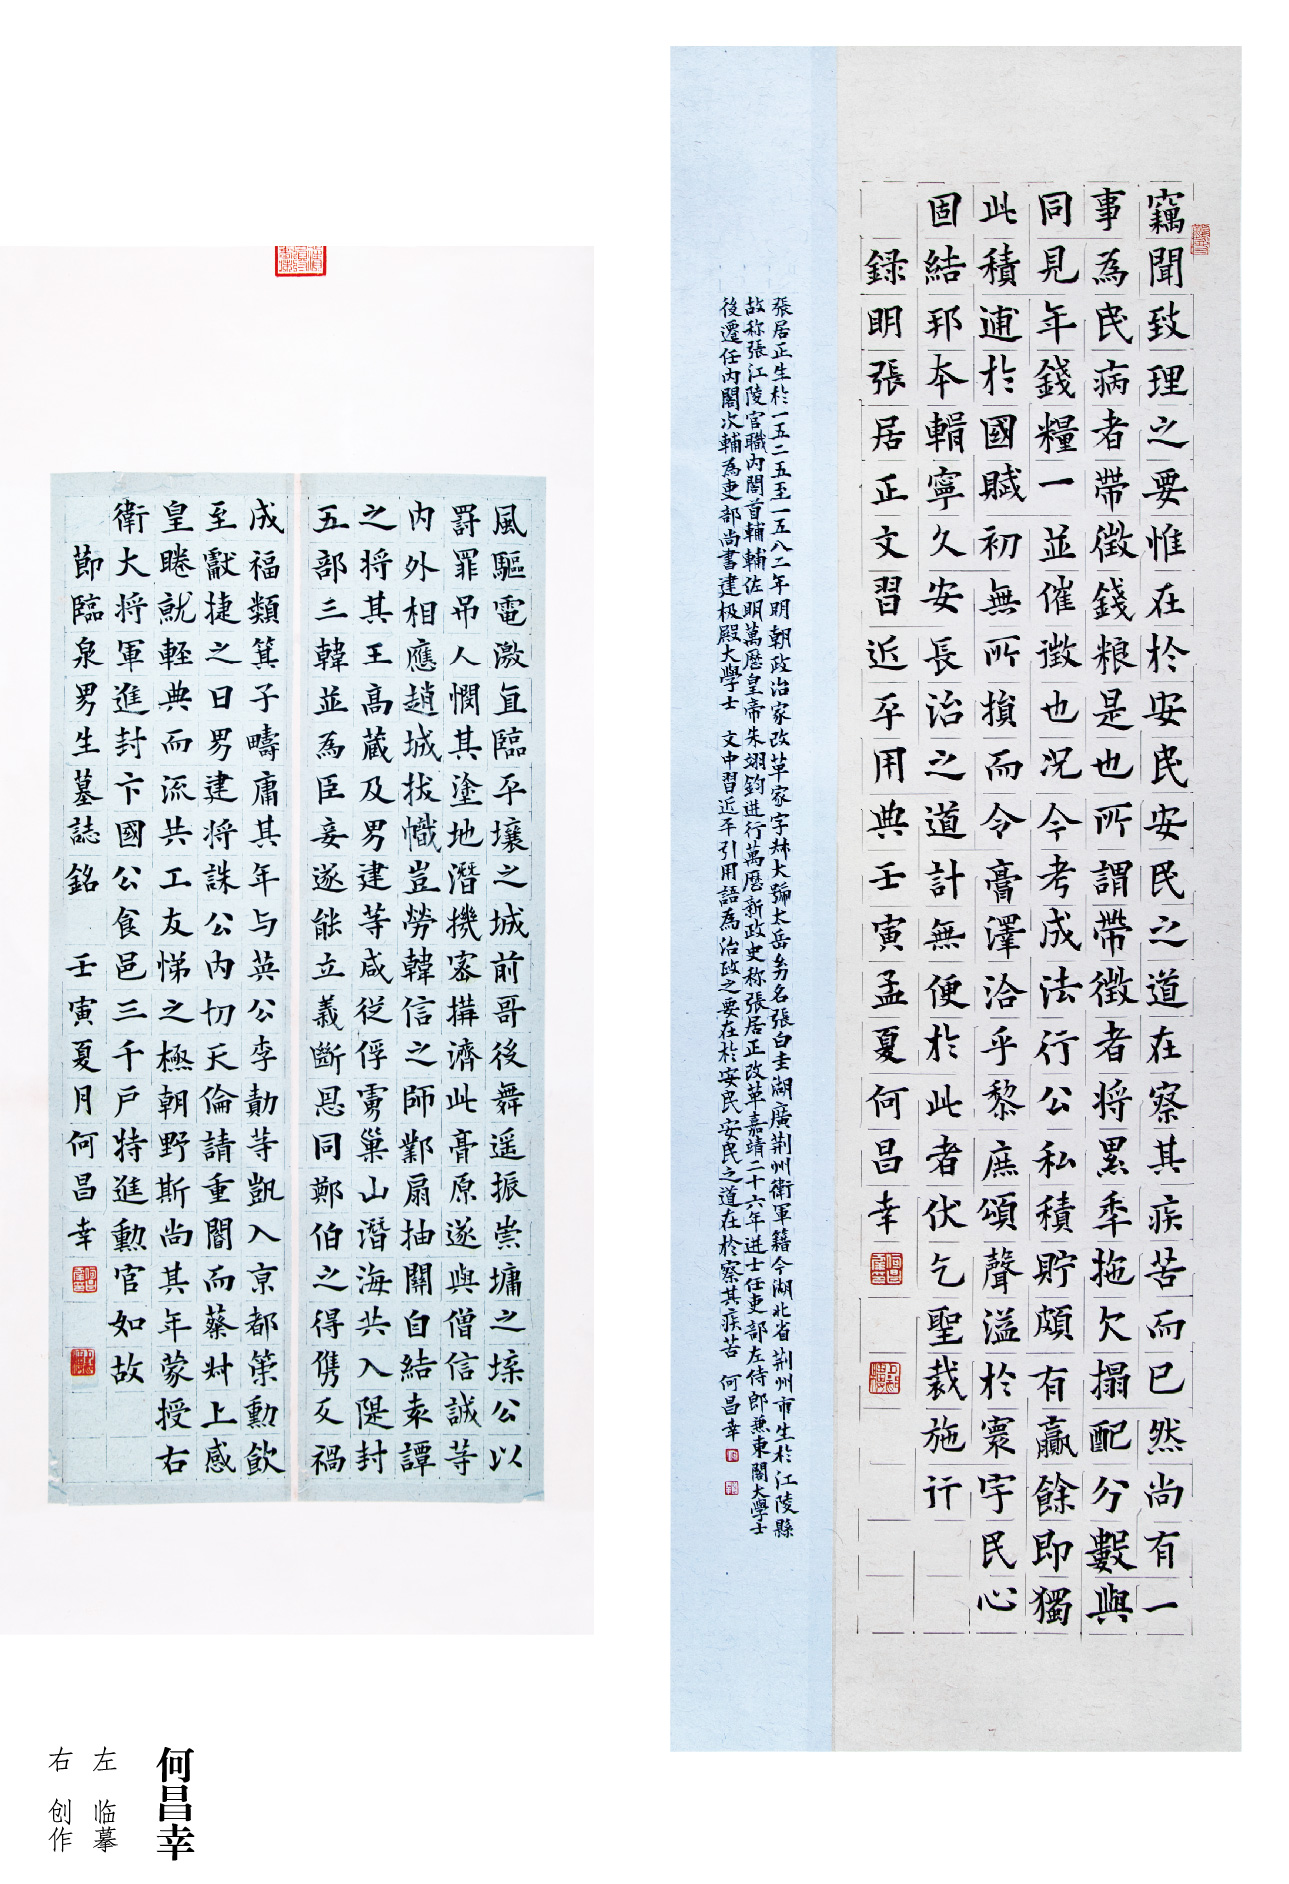 竊聞致理之要惟在於安民安民之道在察其疾苦而已然尚有一
事為民病者帶徵錢粮是也所謂帶徵者将累年拖欠搨配分數與
同見年錢糧一並催徵也况今考成法行公私積貯頗有贏餘即獨
此積逋於國賦初無所損而令膏澤洽乎黎庶頌聲溢於寰宇民心
固結邦本輯寧久安長治之道計無便於此者伏乞聖裁施行
録明張居正文習近平用典壬寅孟夏何昌幸
張居正生於一五二五至一五八二年明朝政治家改革家字叔大號太岳幼名張白圭湖廣荆州衛軍籍今湖北省荆州市生於江陵縣
故称張江陵官職内閣首輔輔佐明萬歷皇帝朱翊鈞进行萬歷新政史称張居正改革嘉靖二十六年进士任吏部左侍郎兼東閣大學士
後遷任内閣次輔為吏部尚書建极殿大學士 文中習近平引用語為治政之要在於安民安民之道在於察其疾苦 何昌幸
風驅電激直臨平壤之城前哥後舞遥振崇墉之堞公以
罸罪吊人憫其塗地潛機密搆濟此膏原遂與僧信誠等
内外相應趙城拔幟豈勞韓信之師鄴扇抽關自結袁譚
之将其王高藏及男建等咸從俘虜巢山潛海共入隄封
五部三韓並為臣妾遂能立義斷恩同鄭伯之得儁反禍
成福類箕子疇庸其年与英公李勣等凱入京都策勳飲
至獻捷之日男建将誅公内切天倫請重閽而蔡叔上感
皇睠就輕典而流共工友悌之極朝野斯尚其年蒙授右
衛大将軍進封卞國公食邑三千戶特進勳官如故
節臨泉男生墓誌銘 壬寅夏月何昌幸
何昌幸
左 临摹
右 创作